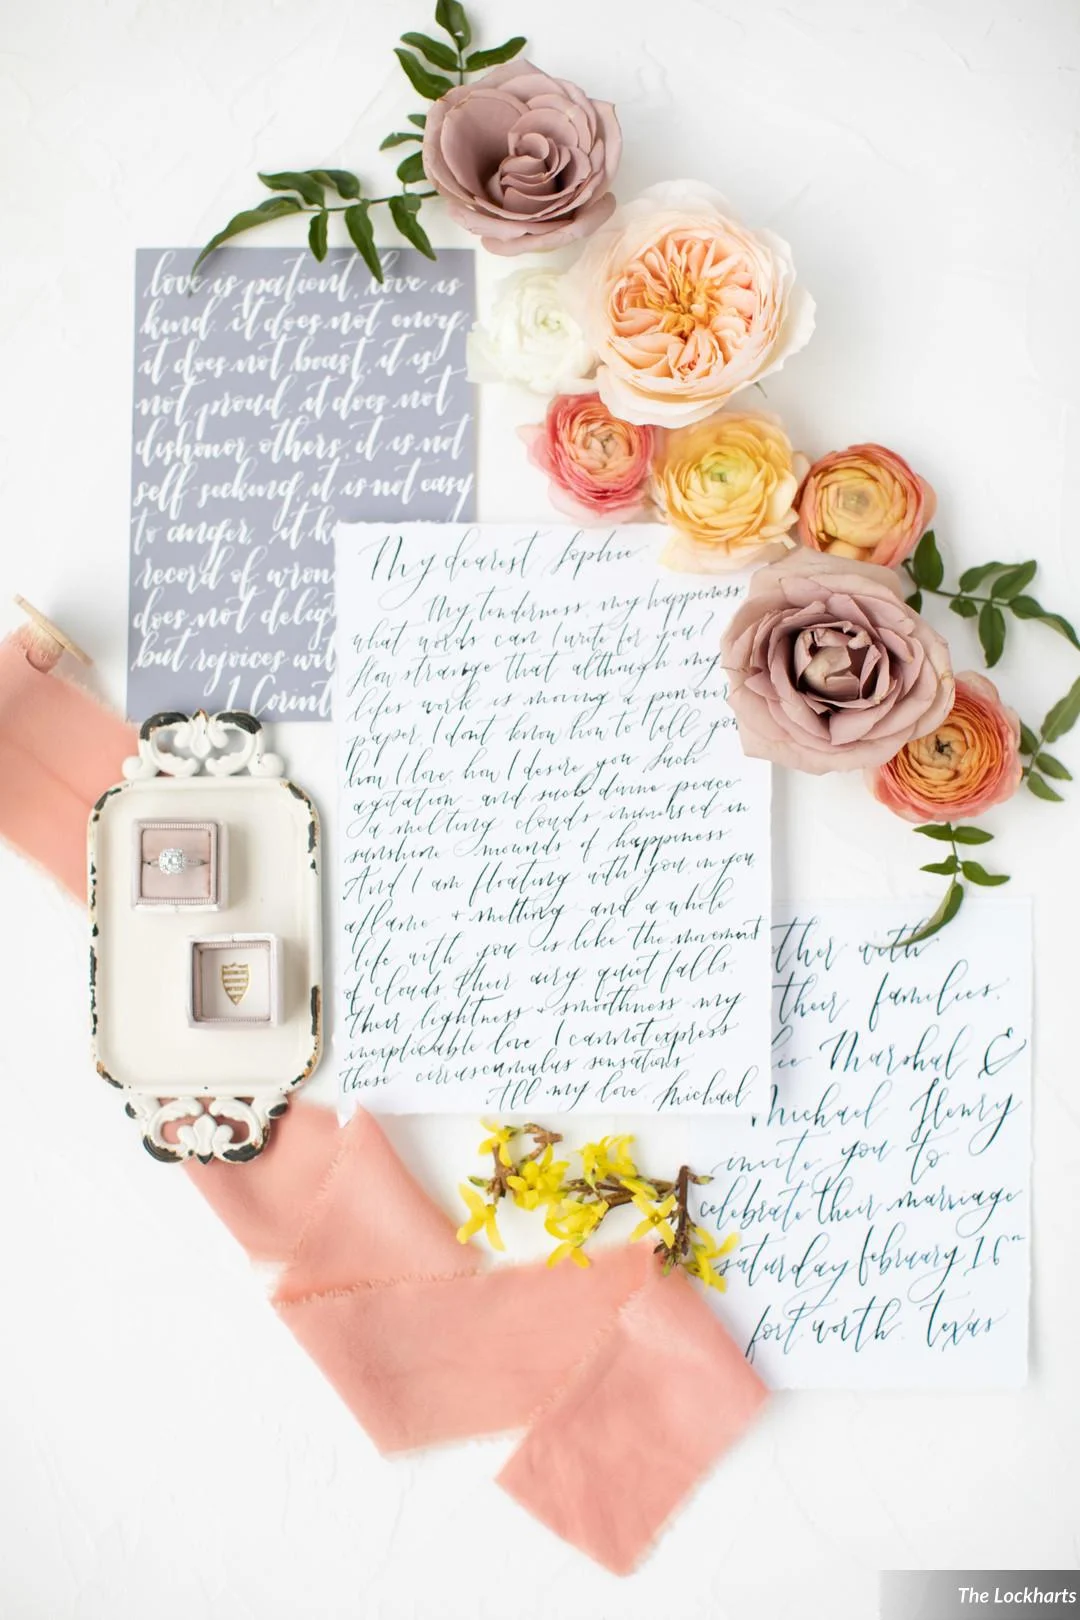 love is patient, love is
kind. it does not envy,
it does not boast, it is
not proud. it does not
dishonor others, it is not
self-seeking, it is not easy
to anger, it k
record of wron
does not delig
but rejoices wit
1 Corint
My dearest Sophie
My tenderness, my happiness,
what words can I write for you?
How strange that although my
lifes work is moving a pen over
paper, I dont know how to tell you
how I love, how I desire you. Such
agitation - and such divine peace
a melting clouds immersed in
sunshine - mounds of happiness.
And I am floating with you, in you,
aflame + melting - and a whole
life with you is like the movement
of clouds their airy, quiet falls,
their lightness + smoothness. my
inexplicable love. I cannot express
these cirrus-cumulus sensations
All my love, Michael
ther with
their families,
ie Marshal &
Michael Henry
invite you to
celebrate their marriage
saturday february 16th
fort worth, texas
The Lockharts